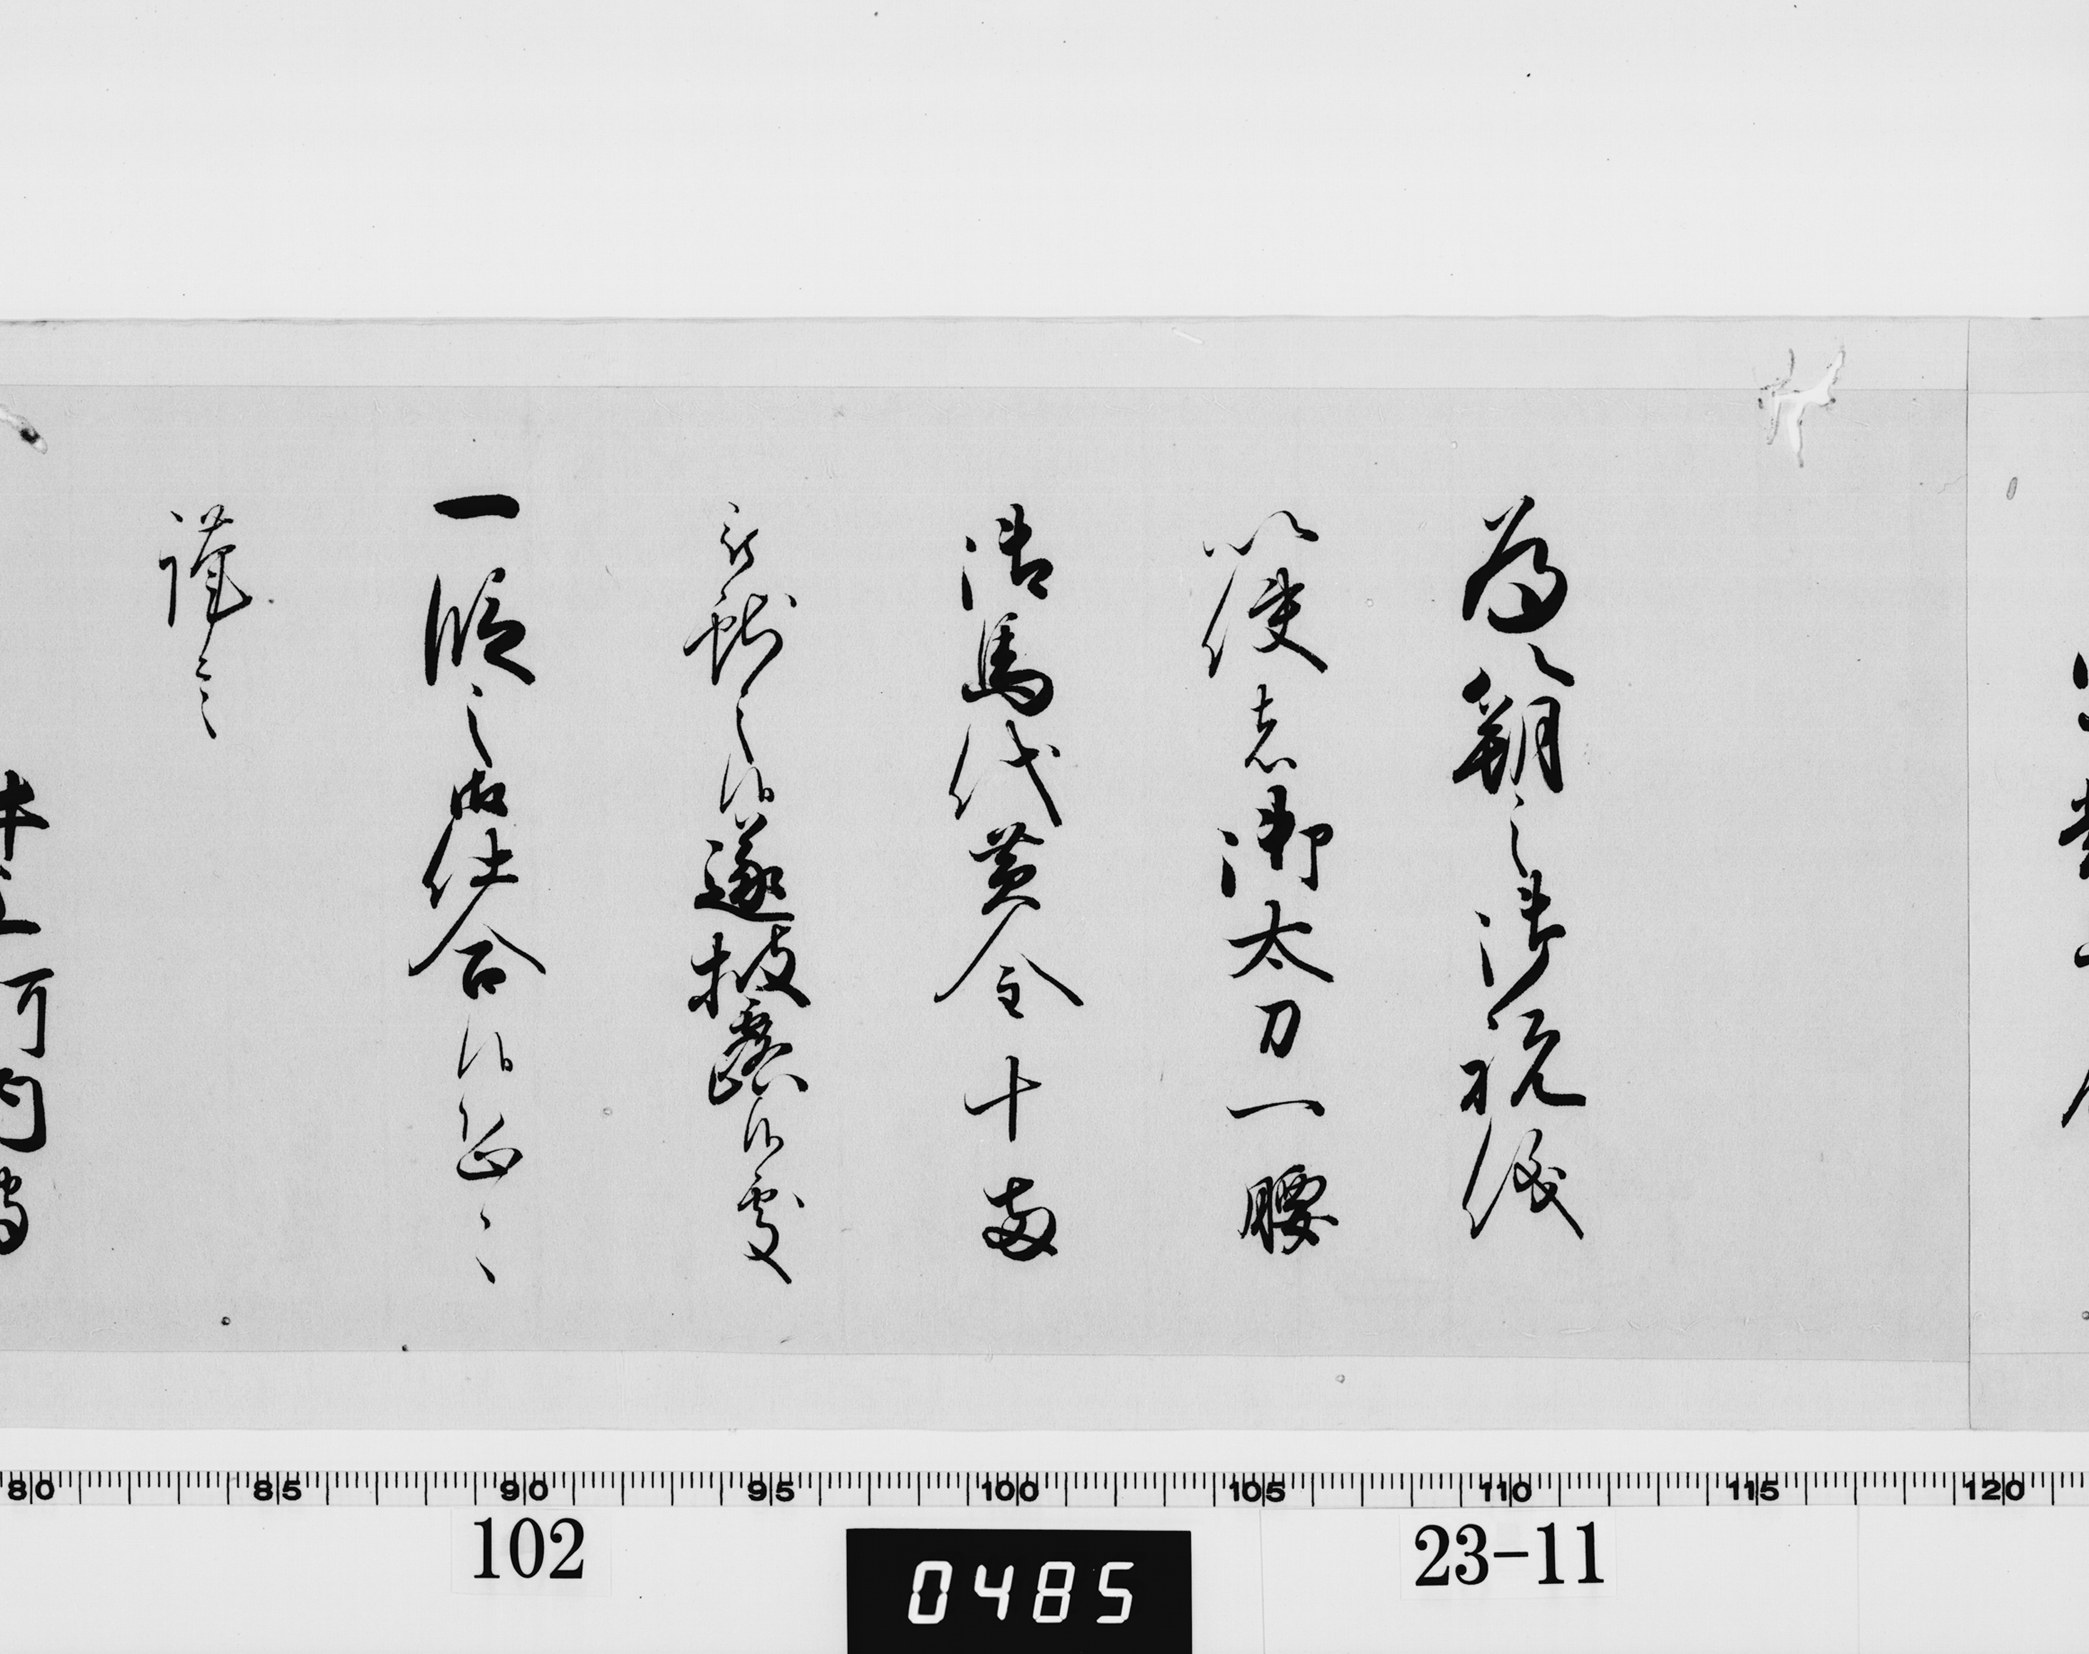 為八朔之御祝儀
以使者御太刀一腰
御馬代黄金十両
被献之候遂披露候処
一段之御仕合候恐々
謹言
井上河内守
80 85 90 95 100 105 110 115 120
102
0485
23-11